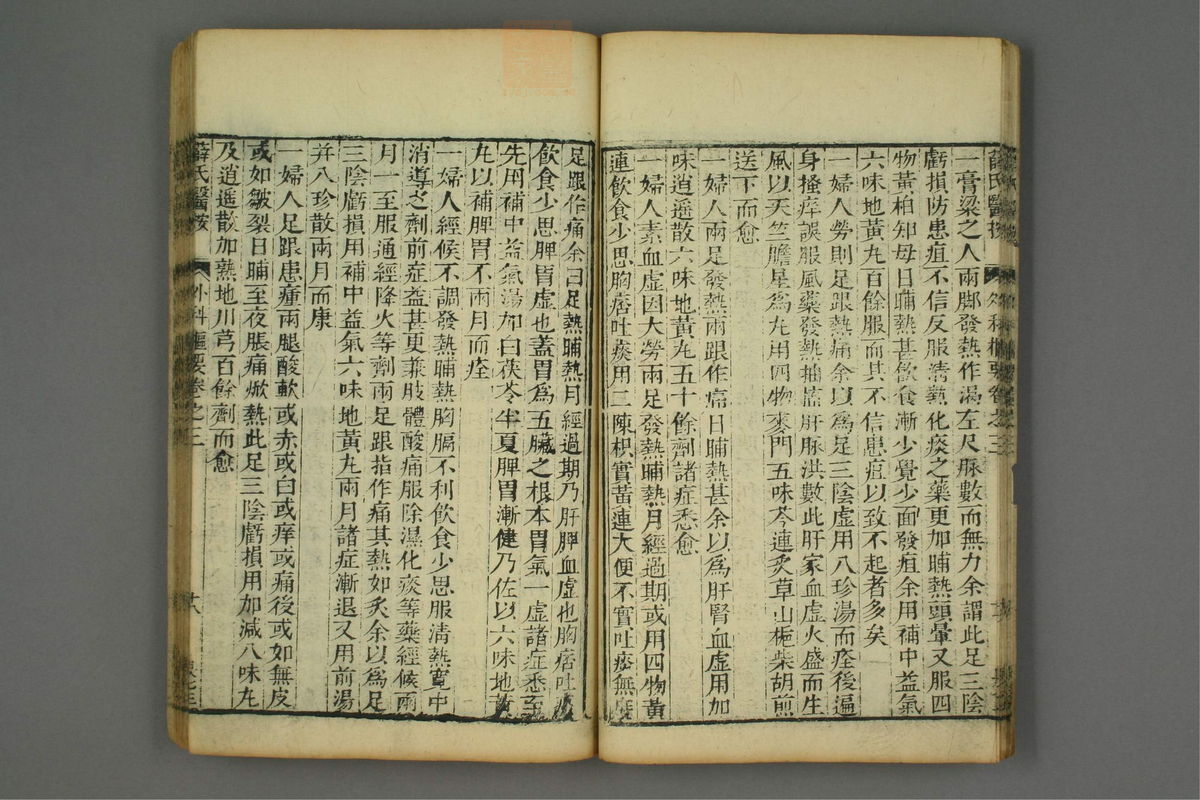 一膏粱之人兩脚發熱作渴左尺脉數而無力余謂此足三陰
虧損防患疽不信反服清熱化痰之藥更加晡熱頭暈又服四
物黃柏知母日晡熱甚飲食漸少覺少面發疽余用補中益氣
六味地黃丸百餘服而其不信患疽以致不起者多矣
一婦人勞則足跟熱痛余以爲足三陰虛用八珍湯而痊後遍
身搔痒誤服風藥發熱抽搐肝脉洪數此肝家血虛火盛而生
風以天竺膽星爲丸用四物麥門五味芩連炙草山梔柴胡煎
送下而愈
一婦人兩足發熱兩跟作痛日晡熱甚余以爲肝腎血虛用加
味逍遥散六味地黃丸五十餘劑諸症悉愈
一婦人素血虛因大勞兩足發熱晡熱月經過期或用四物黃
連飲食少思胸痞吐痰用二陳枳實黃連大便不實吐痰無度
足跟作痛余曰足熱晡熱月經過期乃肝脾血虛也胸痞吐
飲食少思脾胃虛也蓋胃爲五臟之根本胃氣一虛諸症悉至
先用補中益氣湯加白茯苓半夏脾胃漸健乃佐以六味地黃
丸以補脾胃不兩月而痊
一婦人經候不調發熱晡熱胸膈不利飲食少思服清熱寬中
消導之劑前症益甚更兼肢體酸痛服除濕化痰等藥經候兩
月一至服通經降火等劑兩足跟指作痛其熱如炙余以爲足
三陰虧損用補中益氣六味地黃丸兩月諸症漸退又用前湯
并八珍散兩月而康
一婦人足跟患腫兩腿酸軟或赤或白或痒或痛後或如無皮
或如皺裂日晡至夜脹痛焮熱此足三陰虧損用加減八味丸
及逍遥散加熟地川芎百餘劑而愈
薛氏醫按 外科樞要卷之三